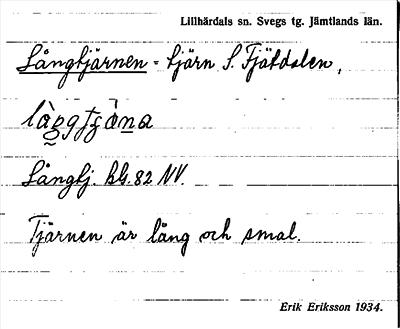 Lillhärdals sn. Svegs tg. Jämtlands län.
Långtjärnen - tjärn S. Fjätdalen,
Långtj. kbl. 82 NV.
Tjärnen är lång och smal.
Erik Eriksson 1934.